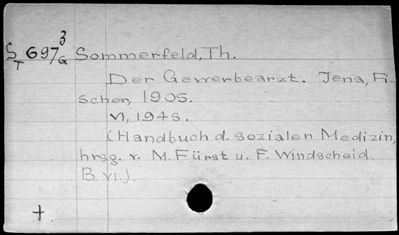 S 697 3 Sommerfeld, Th.
T G
Der Gewerbearzt. Jena, Fi-
scher, 1905.
VI, 194 S.
(Handbuch d. sozialen Medizin,
hrsg. v. M. Fürst u. F. Windscheid.
B. VI.)
+